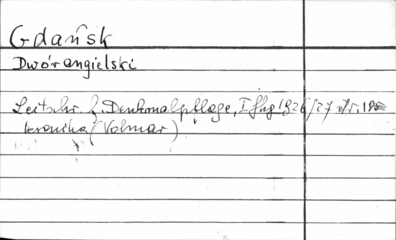 Gdańsk
Dwór angielski
Zeitschr. f. Denkmalpflege, I Jhg 1926/27 Nr. 1
kronika (Volmar)